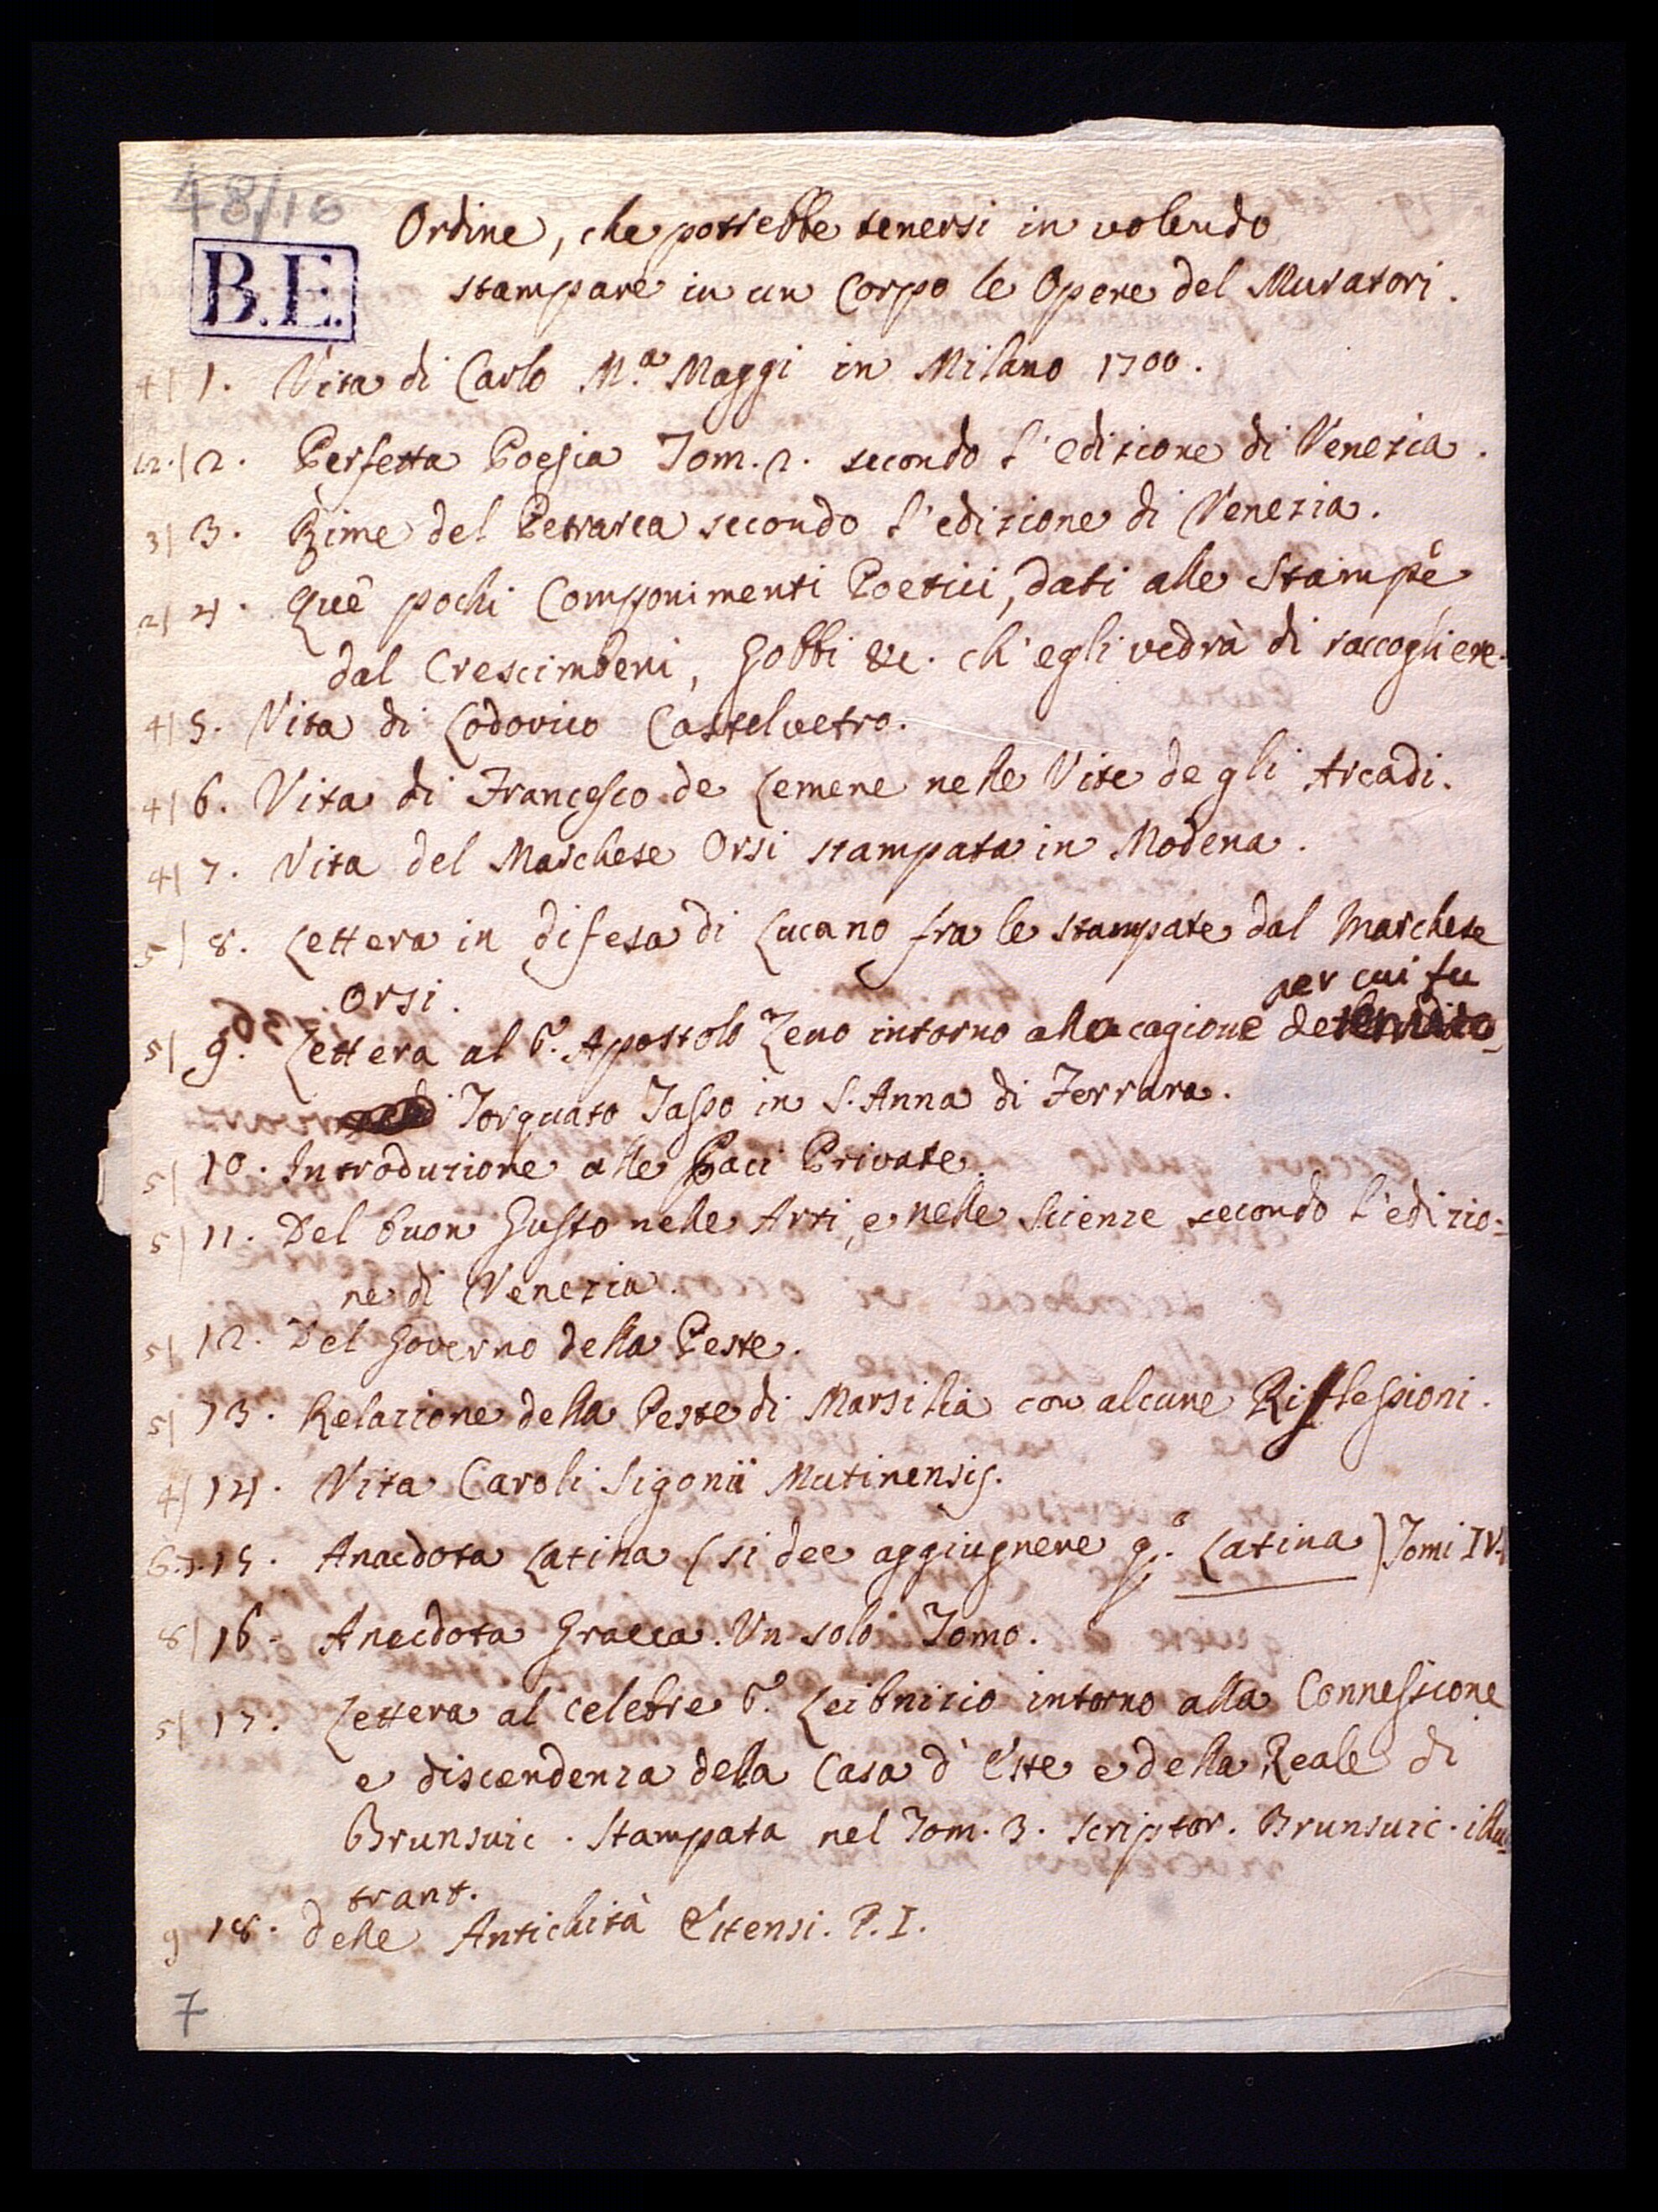 48/16
B.E.
Ordine, che potrebbe tenersi in volendo
stampare in un Corpo le Opere del Muratori.
4| 1. Vita di Carlo M.a Maggi in Milano 1700.
1.2.| 2. Perfetta Poesia Tom. 2. secondo l'edizione di Venezia.
3| 3. Rime del Petrarca secondo l'edizione di Venezia.
2| 4. Que' pochi Componimenti Poetici, dati alle Stampe
dal Crescimbeni, Gobbi &c. ch'egli vedrà di raccogliere.
4| 5. Vita di Lodovico Castelvetro.
4| 6. Vita di Francesco de Lemene nelle Vite degli Arcadi.
4| 7. Vita del Marchese Orsi stampata in Modena.
5| 8. Lettera in difesa di Lucano fra le stampate dal Marchese
Orsi.
per cui fu
5| 9. Lettera al S. Apostolo Zeno intorno alla cagione detenuto
Torquato Tasso in S. Anna di Ferrara.
5| 10. Introduzione alle Paci Private.
5| 11. Del buon Gusto nelle Arti, e nelle Scienze secondo l'edizio-
ne di Venezia.
5| 12. Del Governo della Peste.
5| 13. Relazione della Peste di Marsilia con alcune Riflessioni.
4| 14. Vita Caroli Sigonii Mutinensis.
6.7. 15. Anecdota Latina (si dee aggiugnere Latina) Tomi IV.
8| 16. Anecdota Graeca. Un solo Tomo.
5| 17. Lettera al celebre S. Leibnizio intorno alla Connessione
e discendenza della Casa d'Este e della Reale di
Brunsuic. Stampata nel Tom. 3. Scriptor. Brunsuic. illus-
trant.
9 18. delle Antichità Estensi. P. I.
7